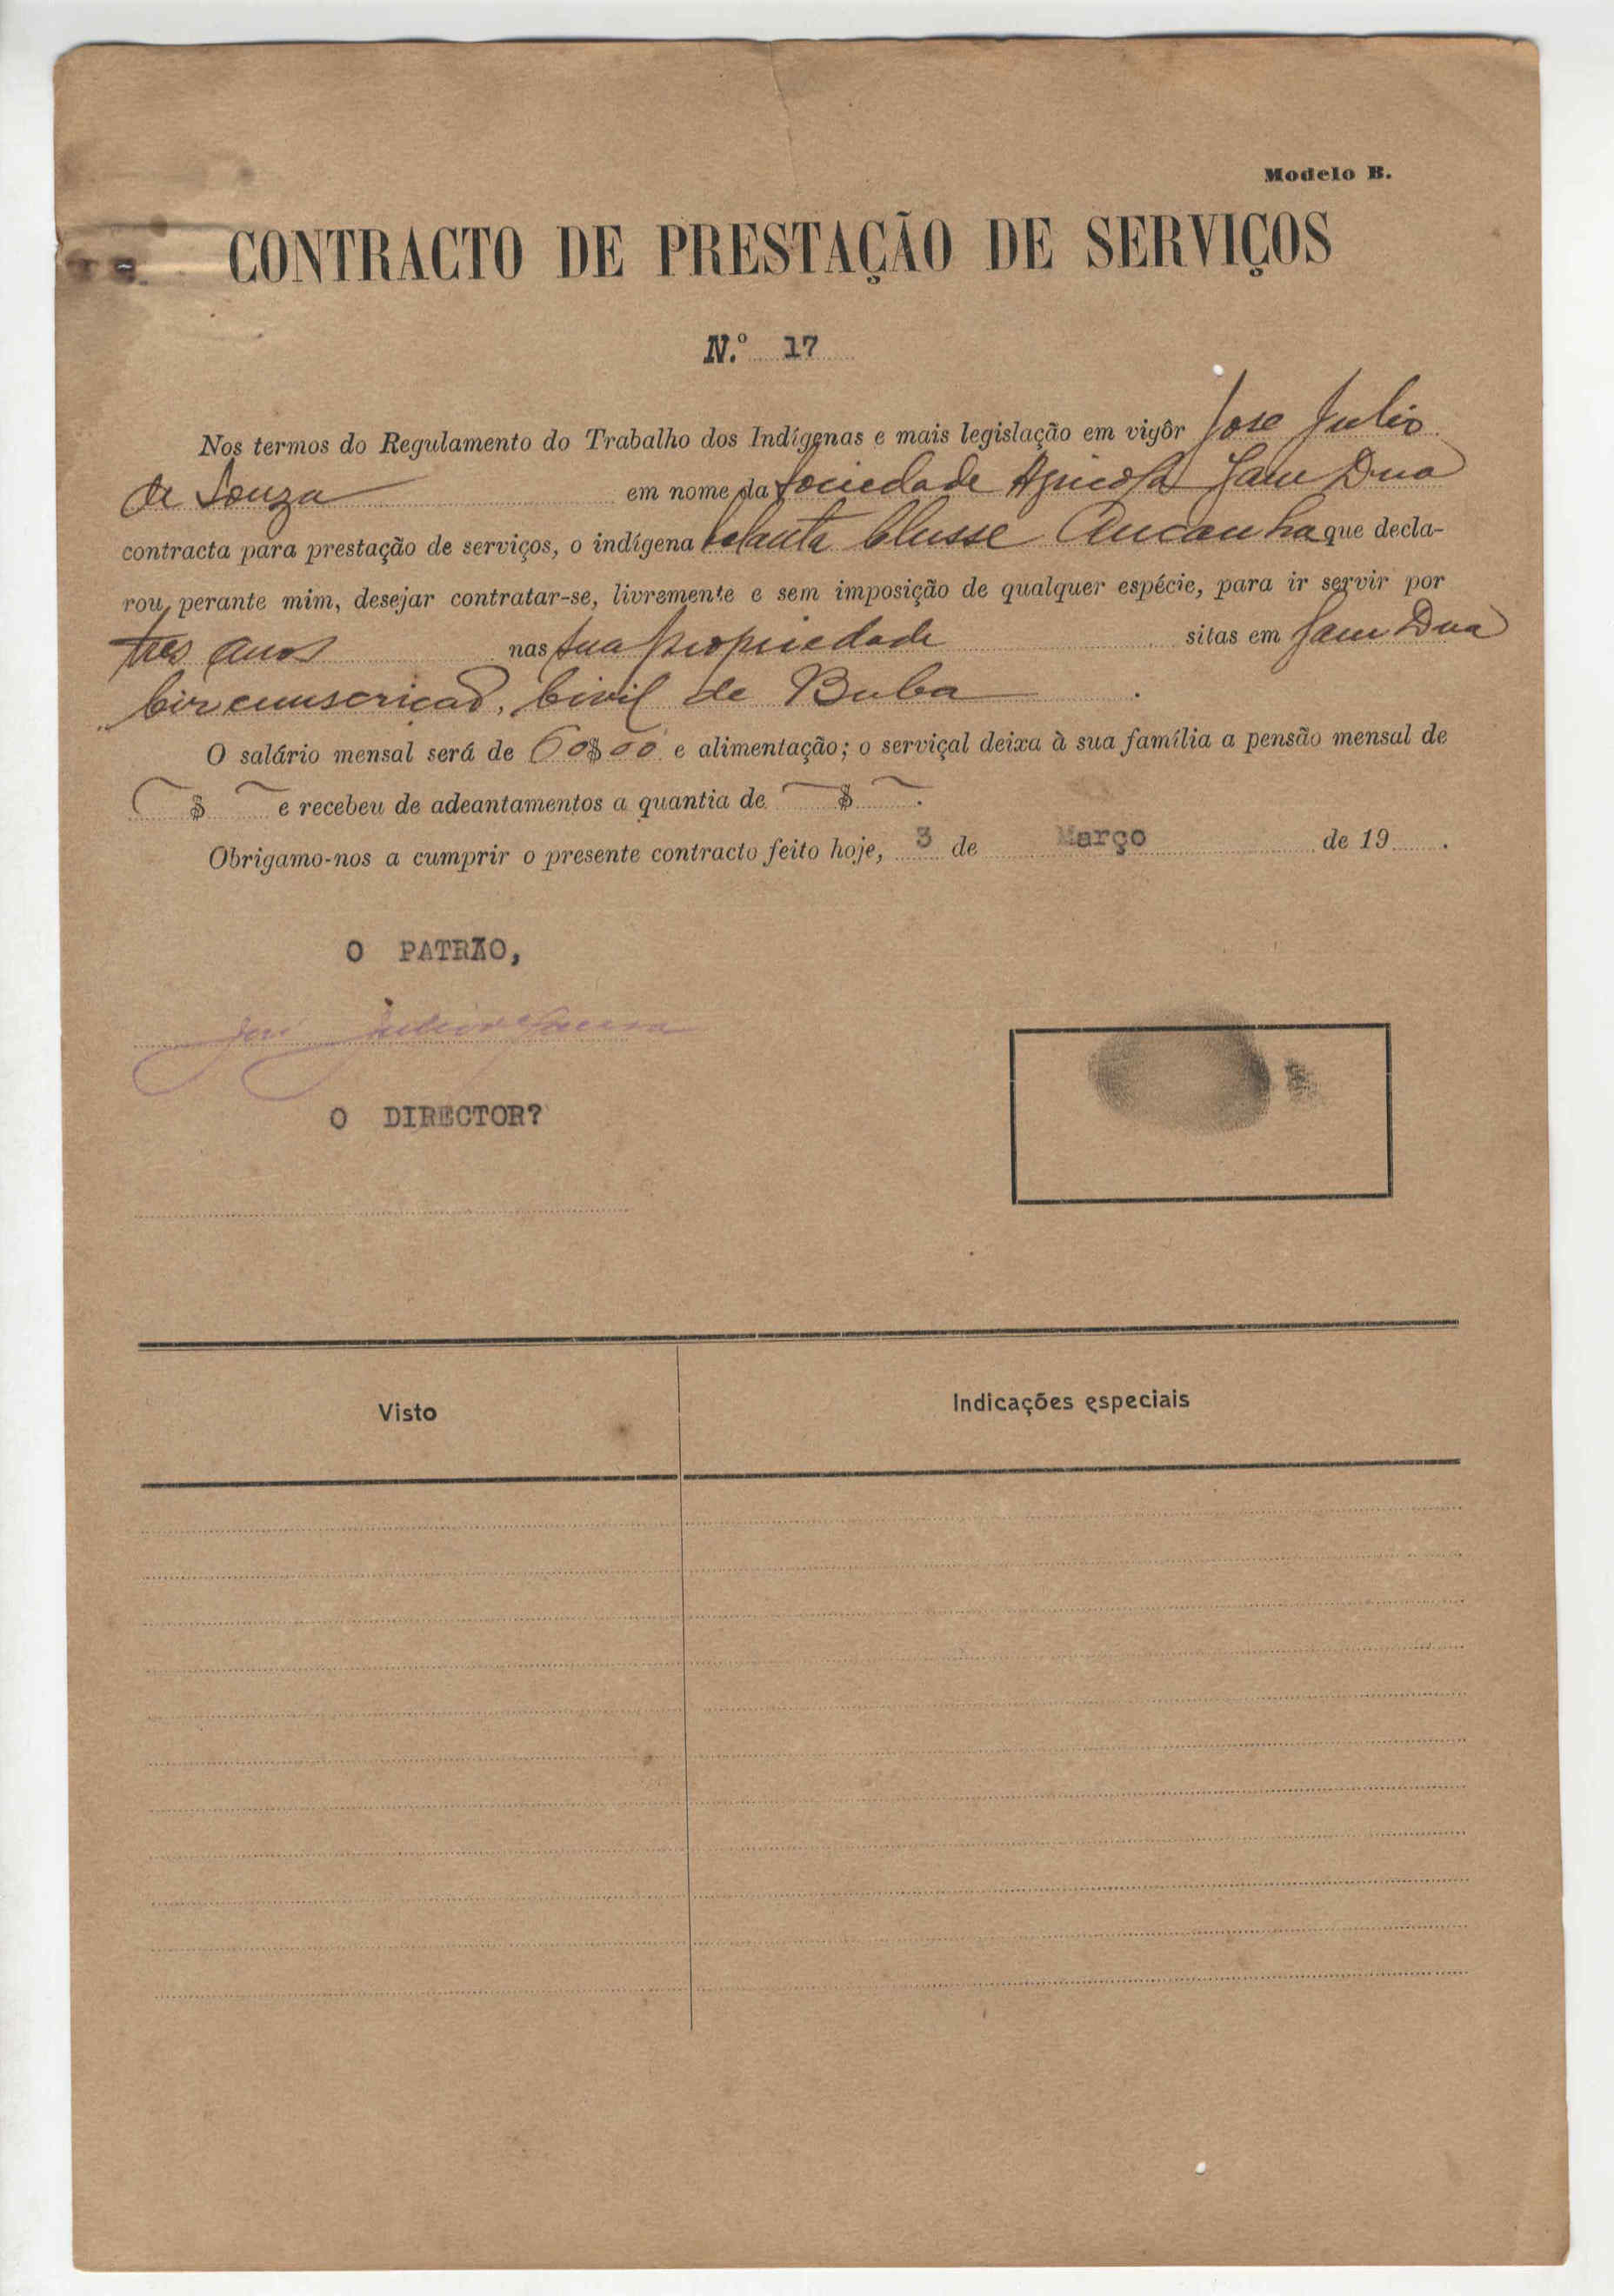 Modelo B.
CONTRACTO DE PRESTAÇÃO DE SERVIÇOS
N.º 17
Nos termos do Regulamento do Trabalho dos Indígenas e mais legislação em vigôr Jose Julio
de Souza em nome da Sociedade Agricola Jam Dua
contracta para prestação de serviços, o indígena que decla-
rou, perante mim, desejar contratar-se, livremente e sem imposição de qualquer espécie, para ir servir por
tres anos nas sua propriedade sitas em Jam Dua
Circumscricao, Civil de Buba .
O salário mensal será de 60$00 e alimentação; o serviçal deixa à sua família a pensão mensal de
$ e recebeu de adeantamentos a quantia de $ .
Obrigamo-nos a cumprir o presente contracto feito hoje, 3 de Março de 19 .
O PATRÃO,
José Julio de Souza
O DIRECTOR?
Visto Indicações especiais